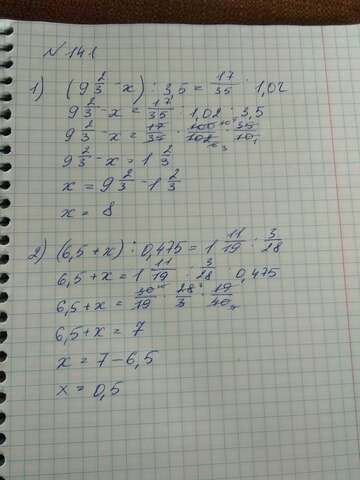 N 141
1) (9 2/3 - x) : 3,5 = 17/35 : 1,02
9 2/3 - x = 17/35 : 1,02 · 3,5
9 2/3 - x = 17/35 · 100/102 · 35/10
9 2/3 - x = 1 2/3
x = 9 2/3 - 1 2/3
x = 8
2) (6,5 + x) : 0,475 = 1 11/19 : 3/28
6,5 + x = 1 11/19 : 3/28 · 0,475
6,5 + x = 30/19 · 28/3 · 19/40
6,5 + x = 7
x = 7 - 6,5
x = 0,5